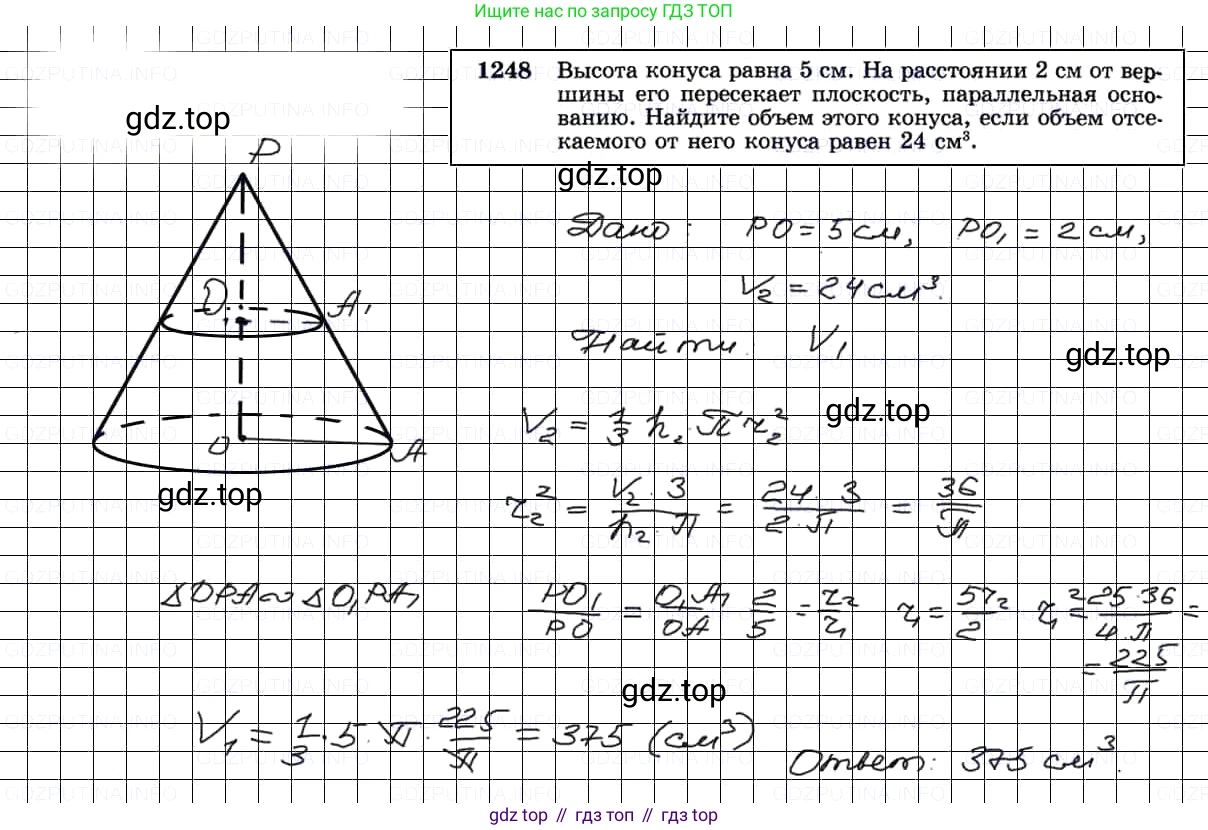 Ищите нас по запросу ГДЗ ТОП
1248 Высота конуса равна 5 см. На расстоянии 2 см от вер-
шины его пересекает плоскость, параллельная осно-
ванию. Найдите объем этого конуса, если объем отсе-
каемого от него конуса равен 24 см³.
gdz.top
gdz.top
P
Дано: PO = 5 см, PO₁ = 2 см,
V₂ = 24 см³.
O₁ A₁
Найти: V₁
gdz.top
V₂ = 1/3 h₂ · π r₂²
gdz.top
O A
gdz.top
r₂² = V₂ · 3 / h₂ · π = 24 · 3 / 2 · π = 36 / π
△OPA ~ △O₁PA₁ PO₁ / PO = O₁A₁ / OA 2/5 = r₂ / r₁ r₁ = 5r₂ / 2 r₁² = 25 · 36 / 4 · π =
= 225 / π
gdz.top
V₁ = 1/3 · 5 · π · 225 / π = 375 (см³)
Ответ: 375 см³.
gdz.top // гдз топ // гдз top
GDZPUTINA.INFO